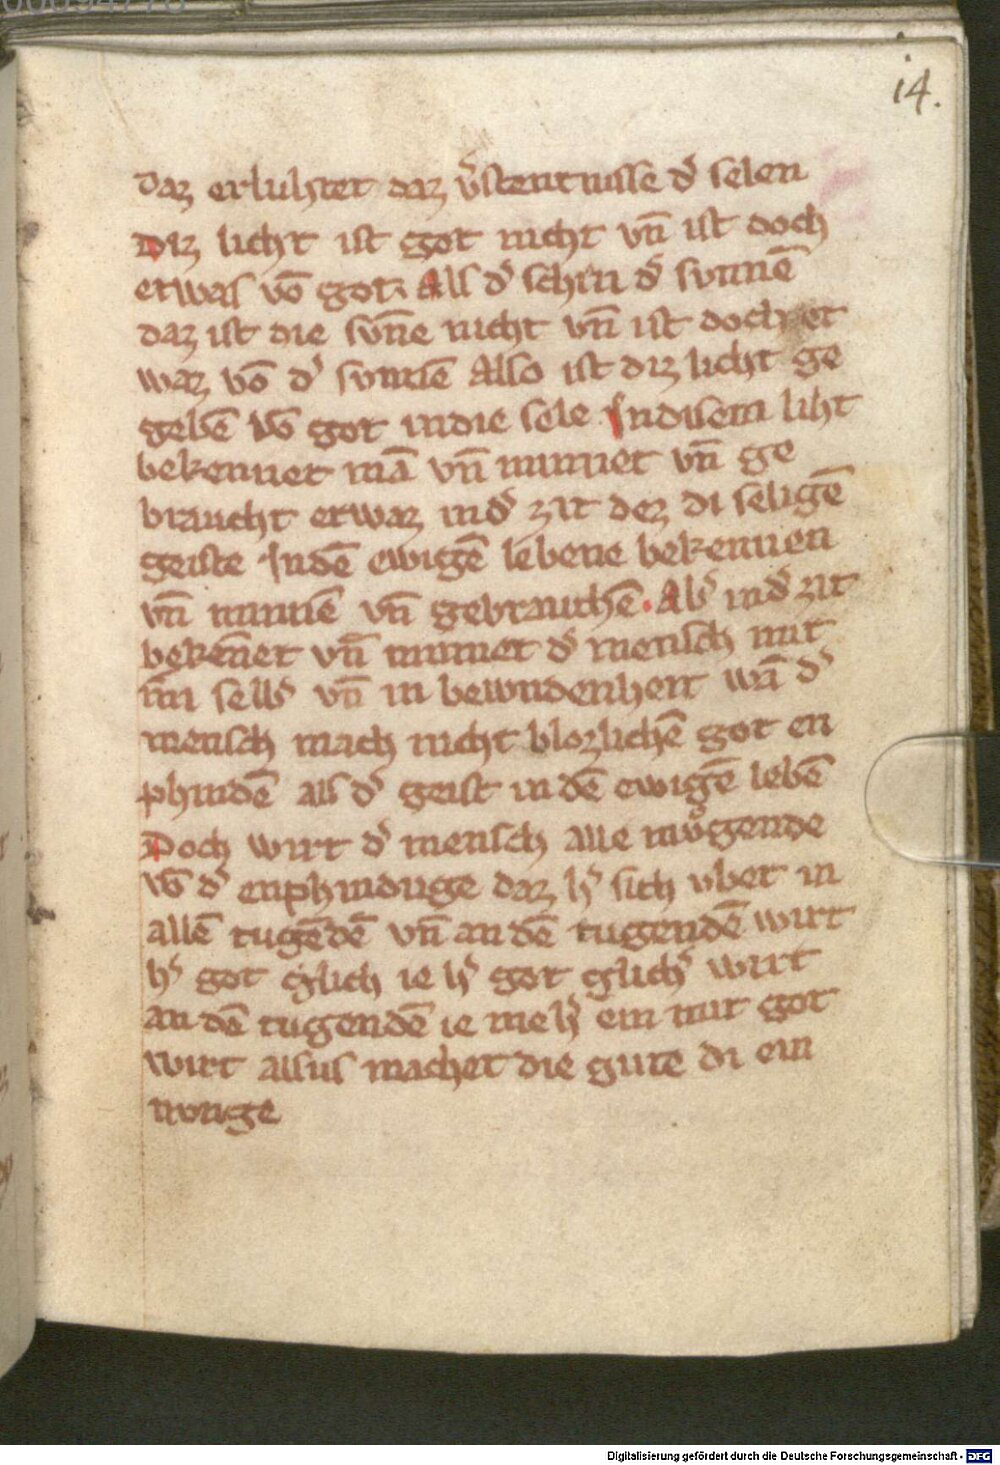 14.
daz erluhstet daz v̾stentnisse d̾ selen
Diz licht ist got nicht vn̄ ist doch
etwas vō got. Als d̾ schin d̾ sunnē
daz ist die sun̄e nicht vn̄ ist doch et
waz vō d̾ sunnē Also ist diz licht ge
gebē vō got indie sele Indisem liht
bekennet mā vn̄ minnet vn̄ ge
braucht etwaz ind̾ zit dez di seligē
geiste Indē ewigē lebene bekennen
vn̄ minnē vn̄ gebrauchē. Ab̾ ind̾ zit
bekēnet vn̄ minnet d̾ mensch mit
im selb̾ vn̄ in bewndenheit wā d̾
mensch mach nicht blozlichē got en
phindē als d̾ geist in dē ewigē lebē
Doch wirt d̾ mensch alle mvͦgende
d̾ enphinduge daz h̾ sich vbet in
allē tugēdē vn̄ an dē tugendē wirt
h̾ got glich ie h̾ got glich̾ wirt
an dē tugendē ie me h̾ ein mit got
wirt alsus machet die gute di ein
nvnge
Digitalisierung gefördert durch die Deutsche Forschungsgemeinschaft - DFG